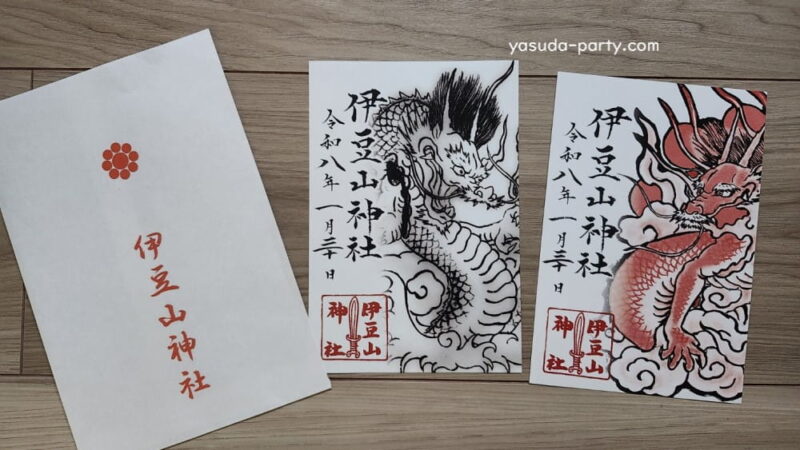 yasuda-party.com
伊豆山神社
伊豆山神社
令和八年一月三十日
伊豆山
神社
伊豆山神社
令和八年一月三十日
伊豆山
神社